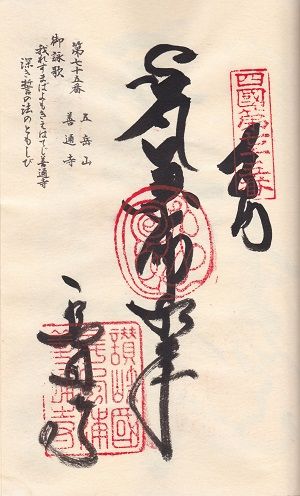 四國第七十五番
奉納
善通寺
讃岐國
屏風浦
善通寺
第七十五番 五岳山 善通寺
御詠歌
我れすまばよもきえはてじ善通寺
深き誓の法のともしび